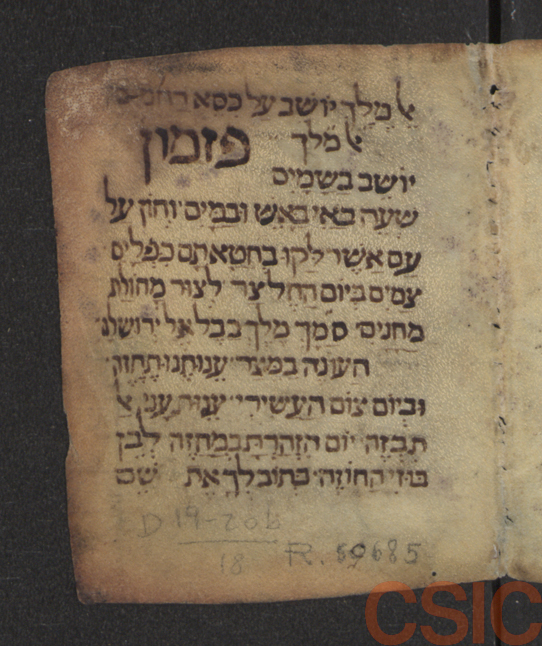 אל מלך יושב על כסא רחמים
אל מלך פזמון
יושב בשמים
שעה באי באש ובמים וחון על
עם אשר לקו בחטאתם כפלים
צמים ביום החל צר לצור מחולת
מחנים סמך מלך בבל אל ירושלם
העונה במצר ענותנו תחזה
וביום צום העשירי ענות עני אל
תבזה יום הזהרת במחזה לבן
בוזי החוזה כתוב לך את שם
D 19-20b
18
R. 59685
CSIC